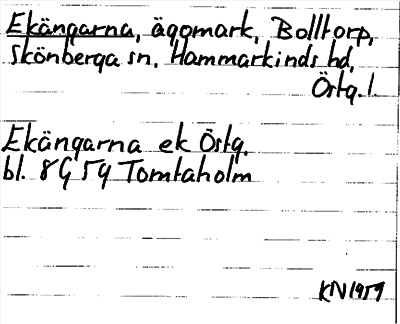 Ekängarna, ägomark, Bolltorp,
Skönberga sn, Hammarkinds hd,
Östg. l.
Ekängarna ek Östg.
bl. 8G 5g Tomtaholm
KN 1957